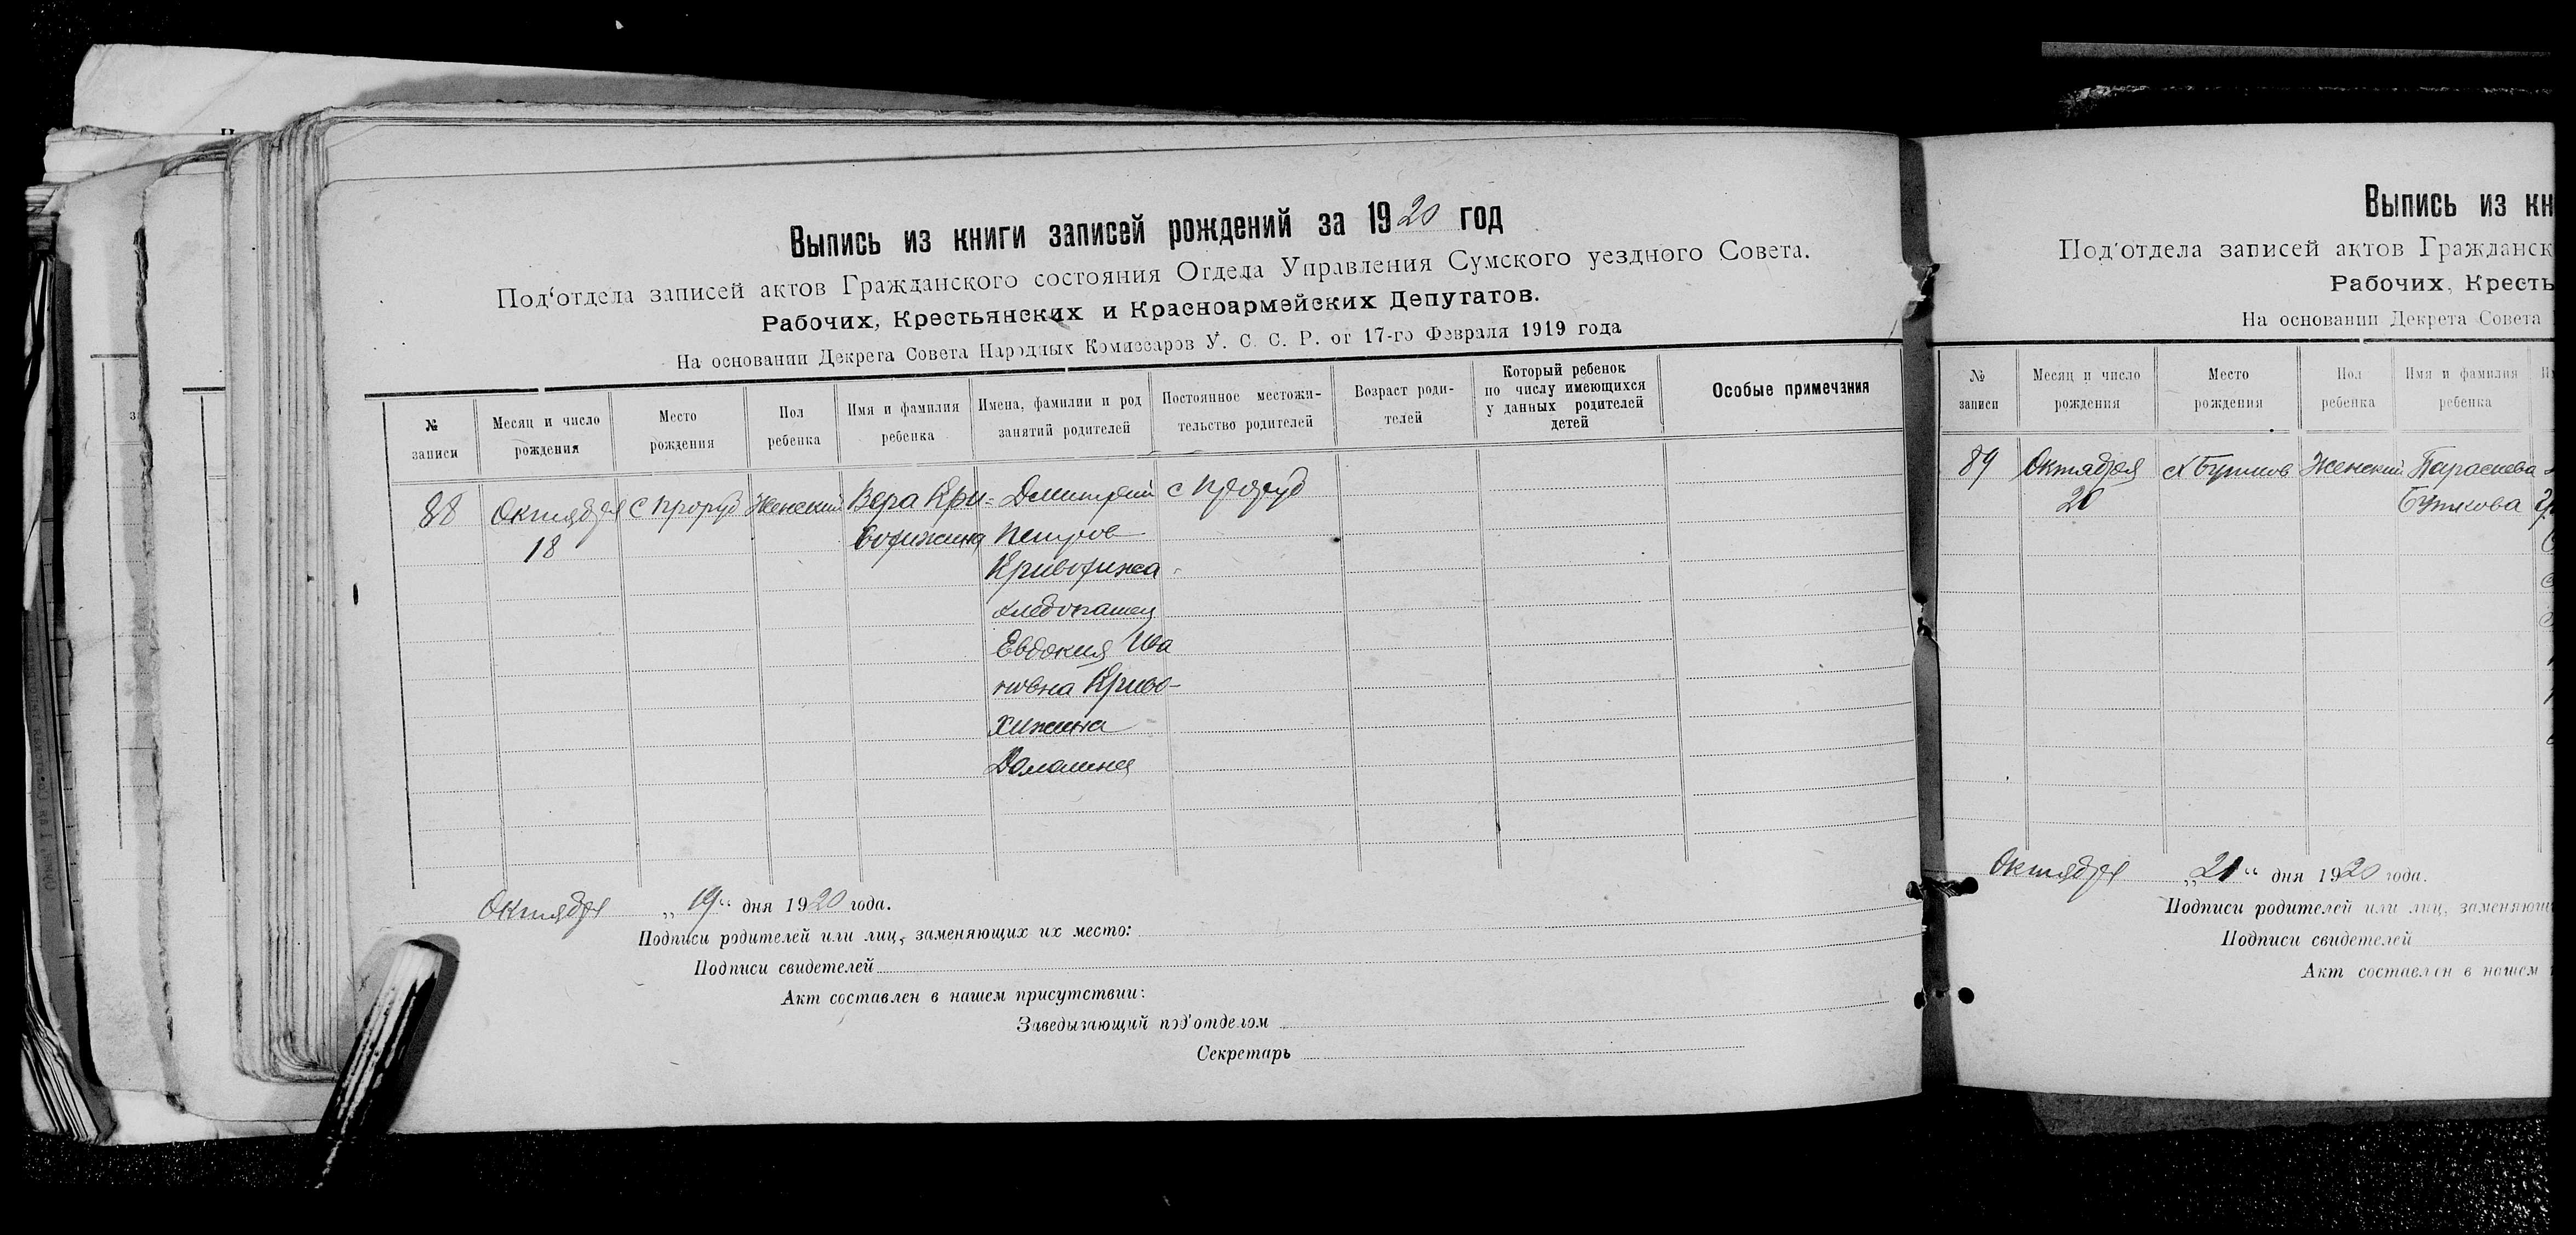 Выпись из книги записей рождений за 1920 год
Под‘отдела записей актов Гражданского состояния Отдела Управления Сумского уездного Совета.
Рабочих, Крестьянских и Красноармейских Депутатов.
На основании Декрета Совета Народных Комиссаров У. С. С. Р. от 17-го Февраля 1919 года
№ записи
Месяц и число рождения
Место рождения
Пол ребенка
Имя и фамилия ребенка
Имена, фамилии и род занятий родителей
Постоянное местожи-тельство родителей
Возраст роди-телей
Который ребенок по числу имеющихся у данных родителей детей
Особые примечания
88
Октября
18
С Проруб
Женский
Вера Кри=
вохижина
Дмитрий
Петров
Кривохижа
хлебопашец
Евдокия Ива
новна Криво-
хижина
Домашняя
с Проруб
Октября „19“ дня 1920 года.
Подписи родителей или лиц, заменяющих их место:
Подписи свидетелей
Акт составлен в нашем присутствии:
Заведывающий под‘отделом
Секретарь
Выпись из кн
Под‘отдела записей актов Гражданск
Рабочих, Кресть
На основании Декрета Совета
№ записи
Месяц и число рождения
Место рождения
Пол ребенка
Имя и фамилия ребенка
89
Октября
20
Женский
Параскева
Октября „21“ дня 1920 года.
Подписи родителей или лиц, заменяющ
Подписи свидетелей
Акт составлен в нашем